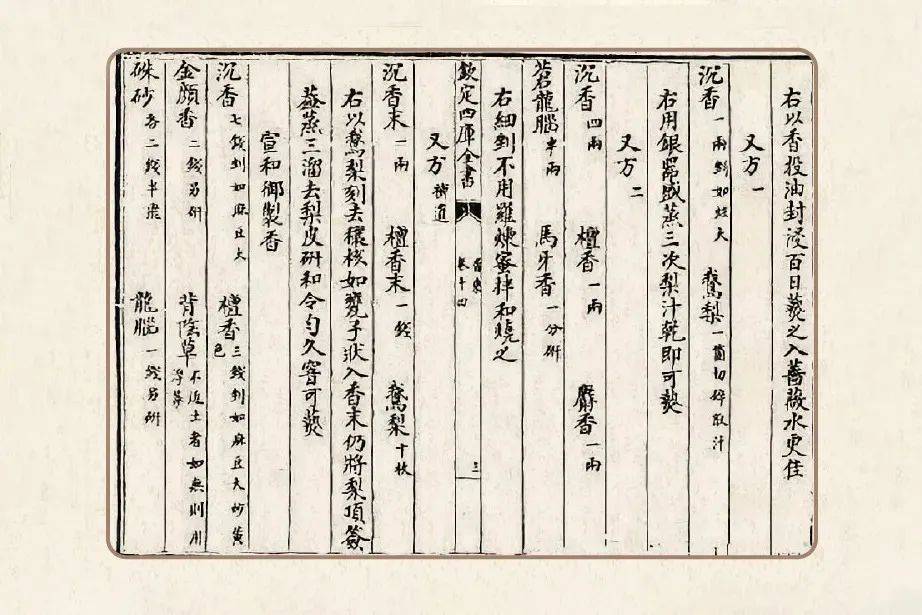 右以香投油封浸百日爇之入薔薇水更佳
又方一
沉香一兩剉如炷大 鵞梨一箇切碎取汁
右用銀器盛蒸三次梨汁乾即可爇
又方二
沉香四兩 檀香一兩 麝香一兩
蒼龍腦半兩 馬牙香一分研
右細剉不用羅煉蜜拌和燒之
欽定四庫全書 卷十四 三
又方補遺
沉香末一兩 檀香末一錢 鵞梨十枚
右以鵞梨刻去穰核如甕子狀入香末仍將梨頂簽
蓋蒸三溜去梨皮研和令勻久窨可爇
宣和御製香
沉香七錢剉如麻豆大 檀香三錢剉如麻豆大炒黃色
金顔香二錢另研 背陰草不近土者如無則用浮萍
硃砂各二錢半 龍腦一錢另研